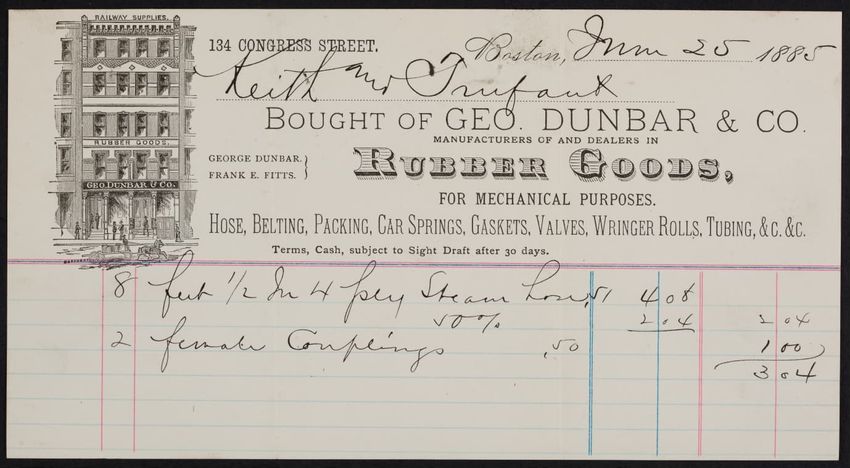 RAILWAY SUPPLIES.
RUBBER GOODS.
GEO. DUNBAR & CO.
134 CONGRESS STREET.
Boston, June 25 1885
Keith and Trufant
BOUGHT OF GEO. DUNBAR & CO.
MANUFACTURERS OF AND DEALERS IN
GEORGE DUNBAR.
FRANK E. FITTS.
RUBBER GOODS,
FOR MECHANICAL PURPOSES.
HOSE, BELTING, PACKING, CAR SPRINGS, GASKETS, VALVES, WRINGER ROLLS, TUBING, &C. &C.
Terms, Cash, subject to Sight Draft after 30 days.
8 feet 1/2 In 4 ply Steam hose .51 4 08
50% 2 04 2 04
2 female Couplings .50 1 00
3 04